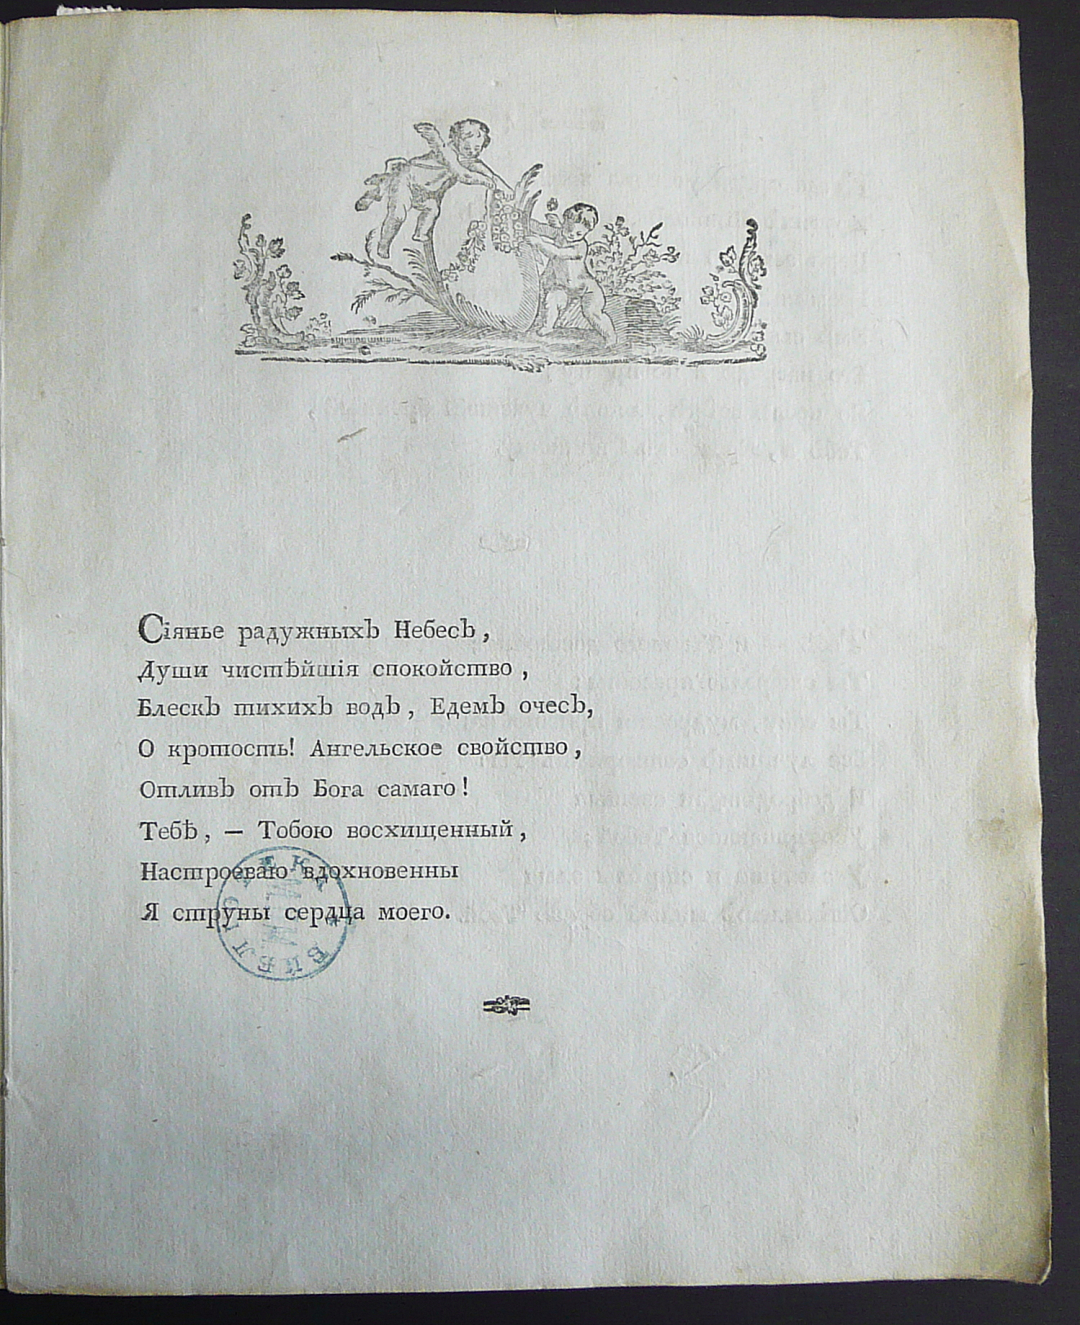 Сіянье радужныхЪ НебесЪ,
Души чистѣйшія спокойство,
БлескЪ тихихЪ водЪ, ЕдемЪ очесЪ,
О кротость! Ангельское свойство,
ОтливЪ отЪ Бога самаго!
Тебѣ, — Тобою восхищенный,
Настроеваю вдохновенны
Я струны сердца моего.